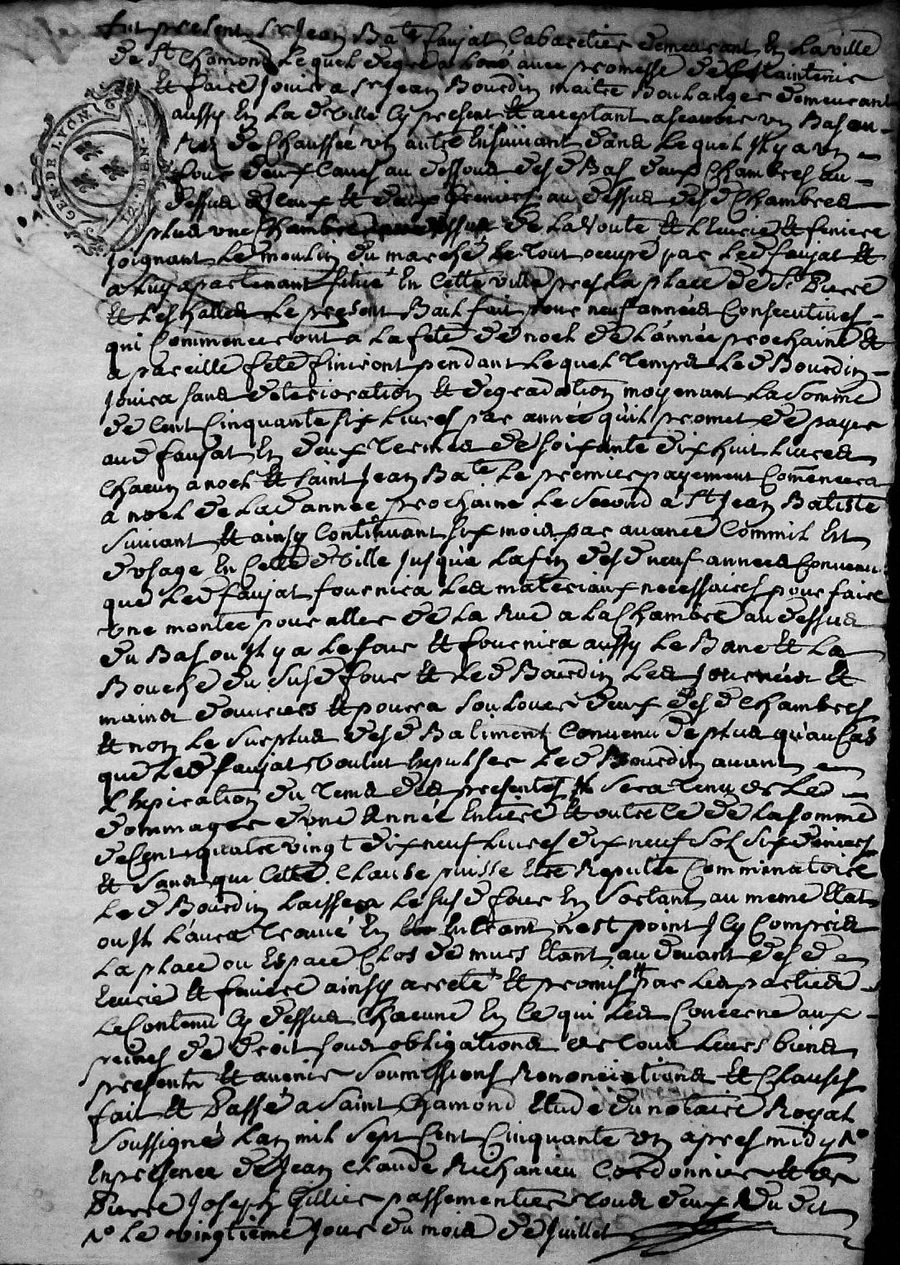 fut present Sr Jean Bate faujat Cabaretier demeurant En La ville
de St Chamond Lequel de gré a Loué avec promesse de Maintenir
Et faire Jouir a sr Jean Bourdin maitre Boulanger demeurant
aussy En La de ville Cy present Et acceptant a scavoir un Bas au
Rés de Chaussée un autre Ensuivant dans Lequel Il y a un
four deux Caves au dessous desd Bas deux Chambres au
dessus d'Iceux Et deux Greniers au dessus desd Chambres
plus une Chambre dessus de La voute Et Ecurie Et finiere
Joignant Le moulin du marché Le tout occupé par Led faujat Et
a Luy apartenant situé En Cette ville pres La place de St Pierre
Et Les halles Le present Bail fait pour neuf années Consecutives
qui Commenceront a La fete de noel de L'année prochaine Et
a pareille fete finiront pendant Lequel temps Led Bourdin
Jouira sans deterioration Et degradation moyenant La Somme
de Cent Cinquante six Livres par année qu'il promet de payer
aud faujat En deux termes de soixante dix huit Livres
Chacun a noel Et saint Jean Bate Le premier payement Commencera
a noel de Lad année prochaine Le Second a St Jean Batiste
suivant Et ainsy Continuant six mois par avance Comm'il Est
d'usage En Cette d ville Jusqu'a La fin desd neuf années Convenu
que Led faujat fournira Les materiaux necessaires pour faire
une montée pour aller de La Rue a La Chambre au dessus
du Bas ou Il y a Le four Et fournira aussy Le Banc Et La
Bouche du susd four Et Led Bourdin Les Journées Et
mains d'ouvriers Et poura soulouer deux desd Chambres
Et non Le surplus desd Batiment Convenu de plus qu'au Cas
que Led faujat voulut Expulser Led Bourdin avant
L'Expiration du tems des presentes Il Sera tenu de Led
dommager d'une Année Entiere Et outre Ce de La somme
de Cent quatre vingt dix neuf Livres dix neuf sols six deniers
Et Sans que Cette Clause puisse Etre Reputée Comminatoire
Led Bourdin Laissera Le susd four En Sortant au meme Etat
ou Il L'aura trouvé En Entrant n'est point Icy Compris
La place ou Espace Clos de murs Etant au devant desd
Ecurie Et finiere ainsy arreté Et promis par Les parties
Le Contenu Cy dessus Chacune En Ce qui Les Concerne aux
peines de droit sous obligations de tous Leurs biens
presents Et avenir Soumissions Renonciations Et Clauses
fait Et Passé a Saint Chamond Etude du notaire Royal
Soussigné L'an mil Sept Cent Cinquante un apres midy
En presence de Jean Claude Richanieu Cordonnier Et de
Pierre Joseph Gillier passementier tous deux du dit
Le vingtieme Jour du mois de Juillet
GEN. DE LYON